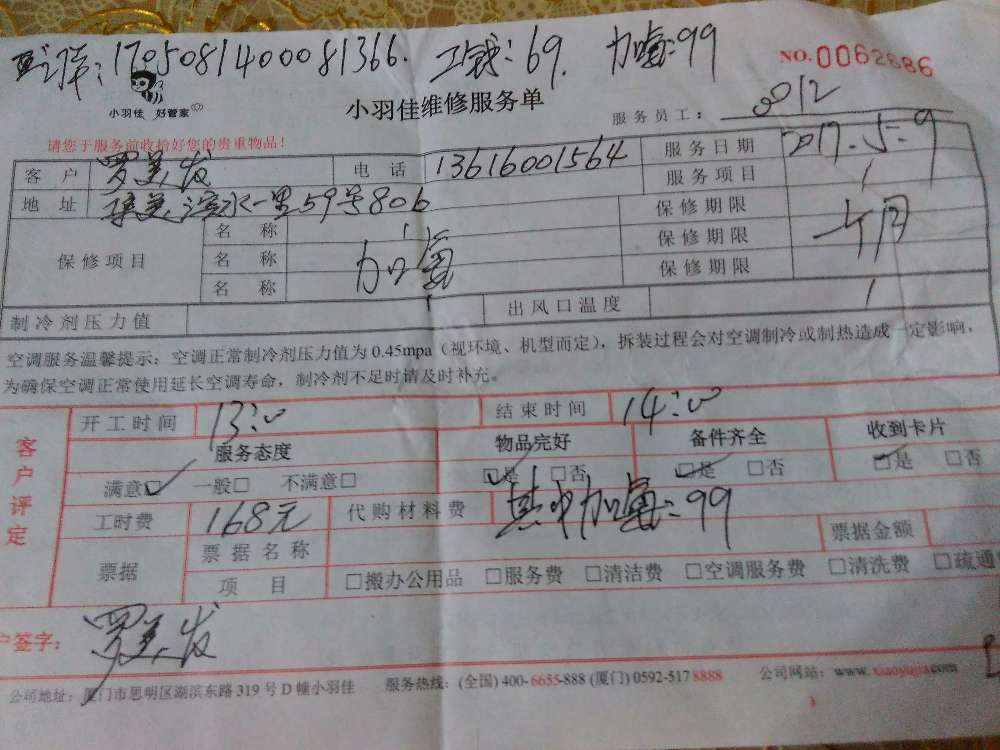 1705081400081366. 工钱:69. 加氟:99
NO.0062886
小羽佳 好管家
小羽佳维修服务单
服务员工: 8012
请您于服务前收拾好您的贵重物品!
客户 罗美发 电话 13616001564 服务日期 2017.5.9
服务项目 1
地址 集美滨水一里59号806 保修期限
保修项目 名称 保修期限 一个月
名称 加氟 保修期限
名称
制冷剂压力值 出风口温度
空调服务温馨提示:空调正常制冷剂压力值为0.45mpa(视环境、机型而定),拆装过程会对空调制冷或制热造成一定影响,
为确保空调正常使用延长空调寿命,制冷剂不足时请及时补充。
客户评定
开工时间 13:00 结束时间 14:00
服务态度 物品完好 备件齐全 收到卡片
满意□ 一般□ 不满意□ □是 □否 □是 □否 □是 □否
工时费 168元 代购材料费 其中加氟:99
票据 票据名称 票据金额
项目 □搬办公用品 □服务费 □清洁费 □空调服务费 □清洗费 □疏通
户签字: 罗美发
公司地址:厦门市思明区湖滨东路319号D幢小羽佳 服务热线:(全国)400-6655-888 (厦门)0592-5178888 公司网站:www.xiaoyujia.com
3